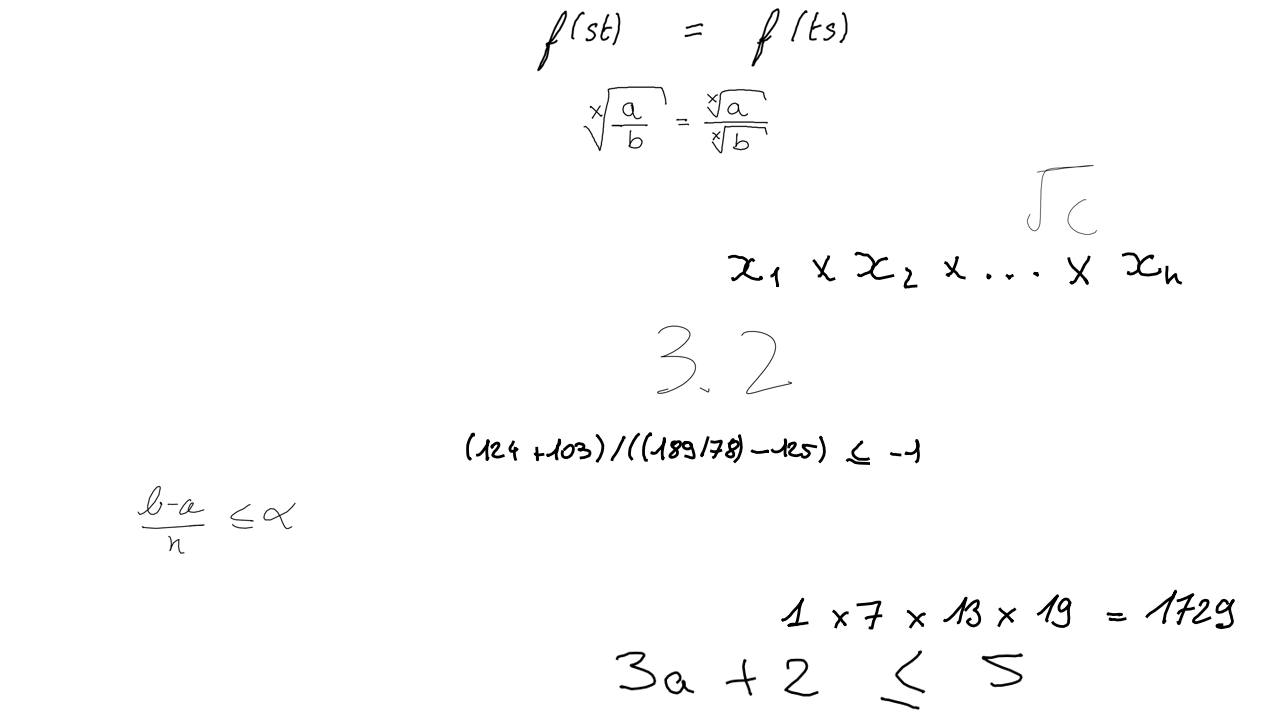 f(st) = f(ts)
\sqrt[x]{\frac{a}{b}} = \frac{\sqrt[x]{a}}{\sqrt[x]{b}}
\sqrt{c}
x_1 × x_2 × ... × x_n
3.2
(124+103)/((189/78)-125) ≤ -1
\frac{b-a}{n} ≤ α
1 × 7 × 13 × 19 = 1729
3a + 2 ≤ 5